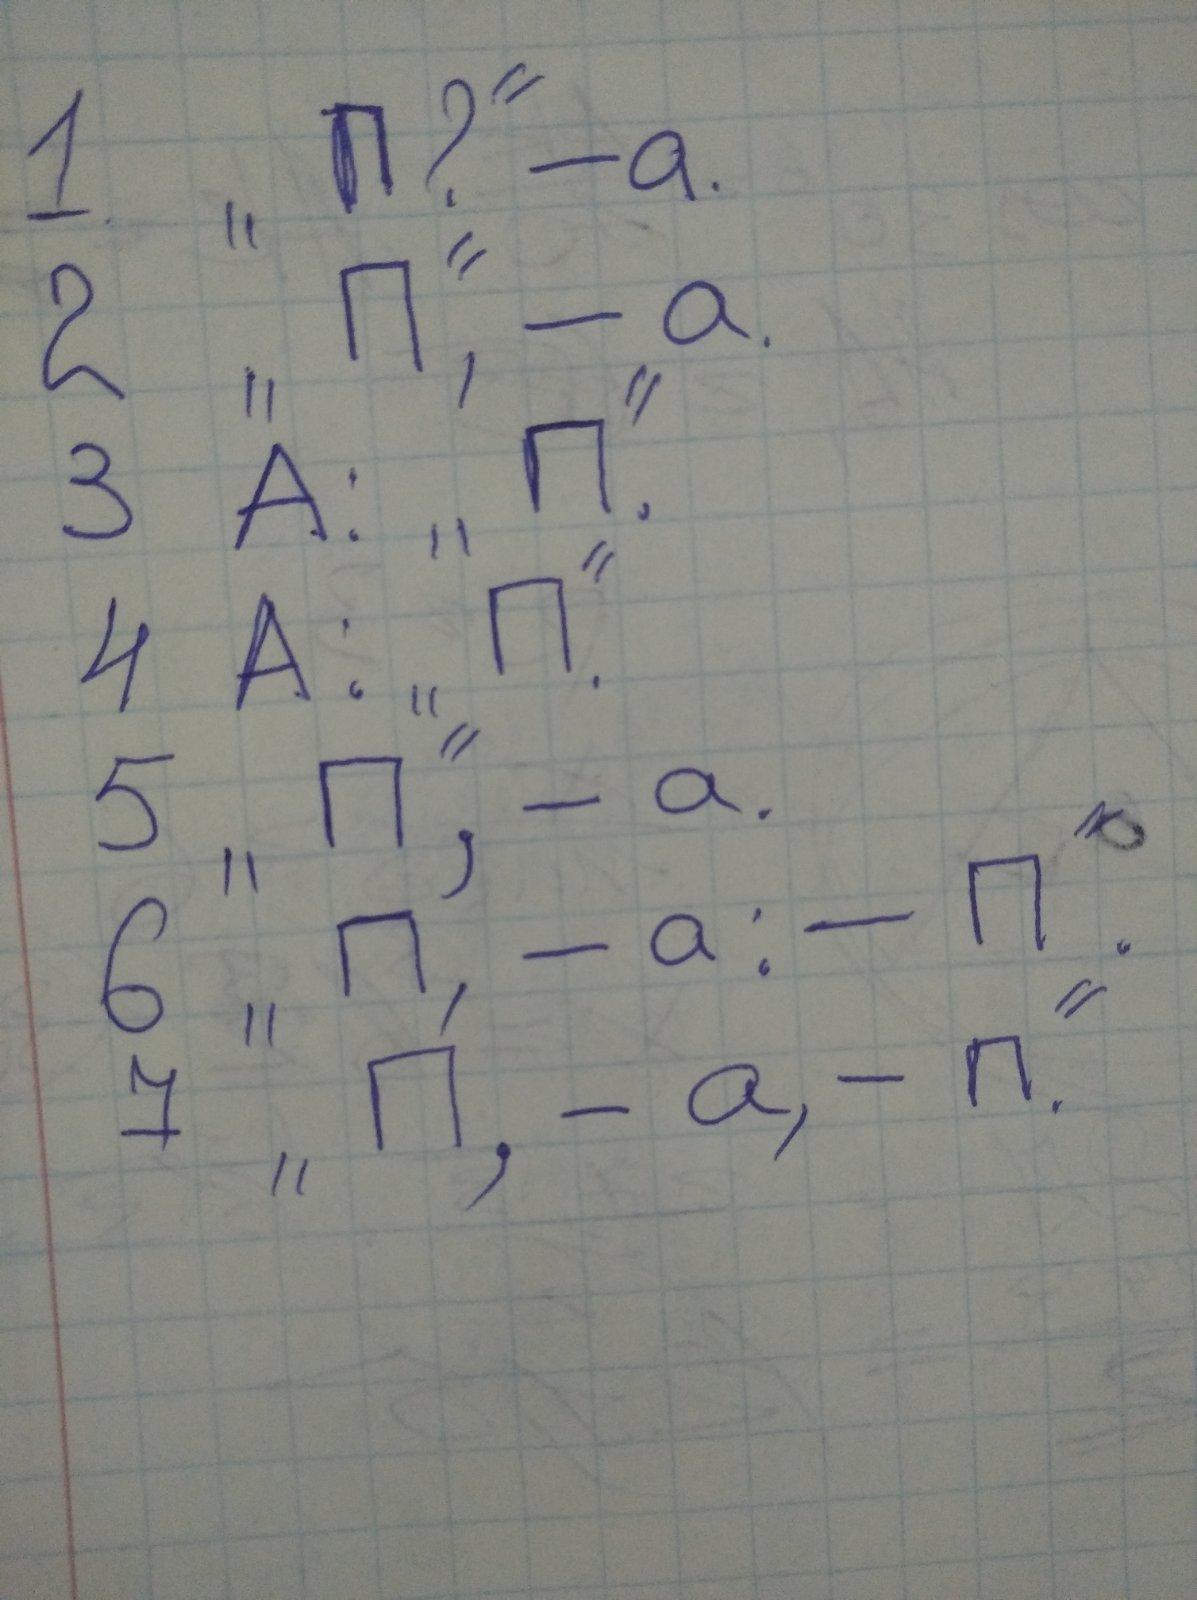 1. „П?“ – а.
2 „П“, – а.
3 А: „П“.
4 А: „П“.
5 „П“, – а.
6 „П, – а: – П“.
7 „П, – а, – п.“